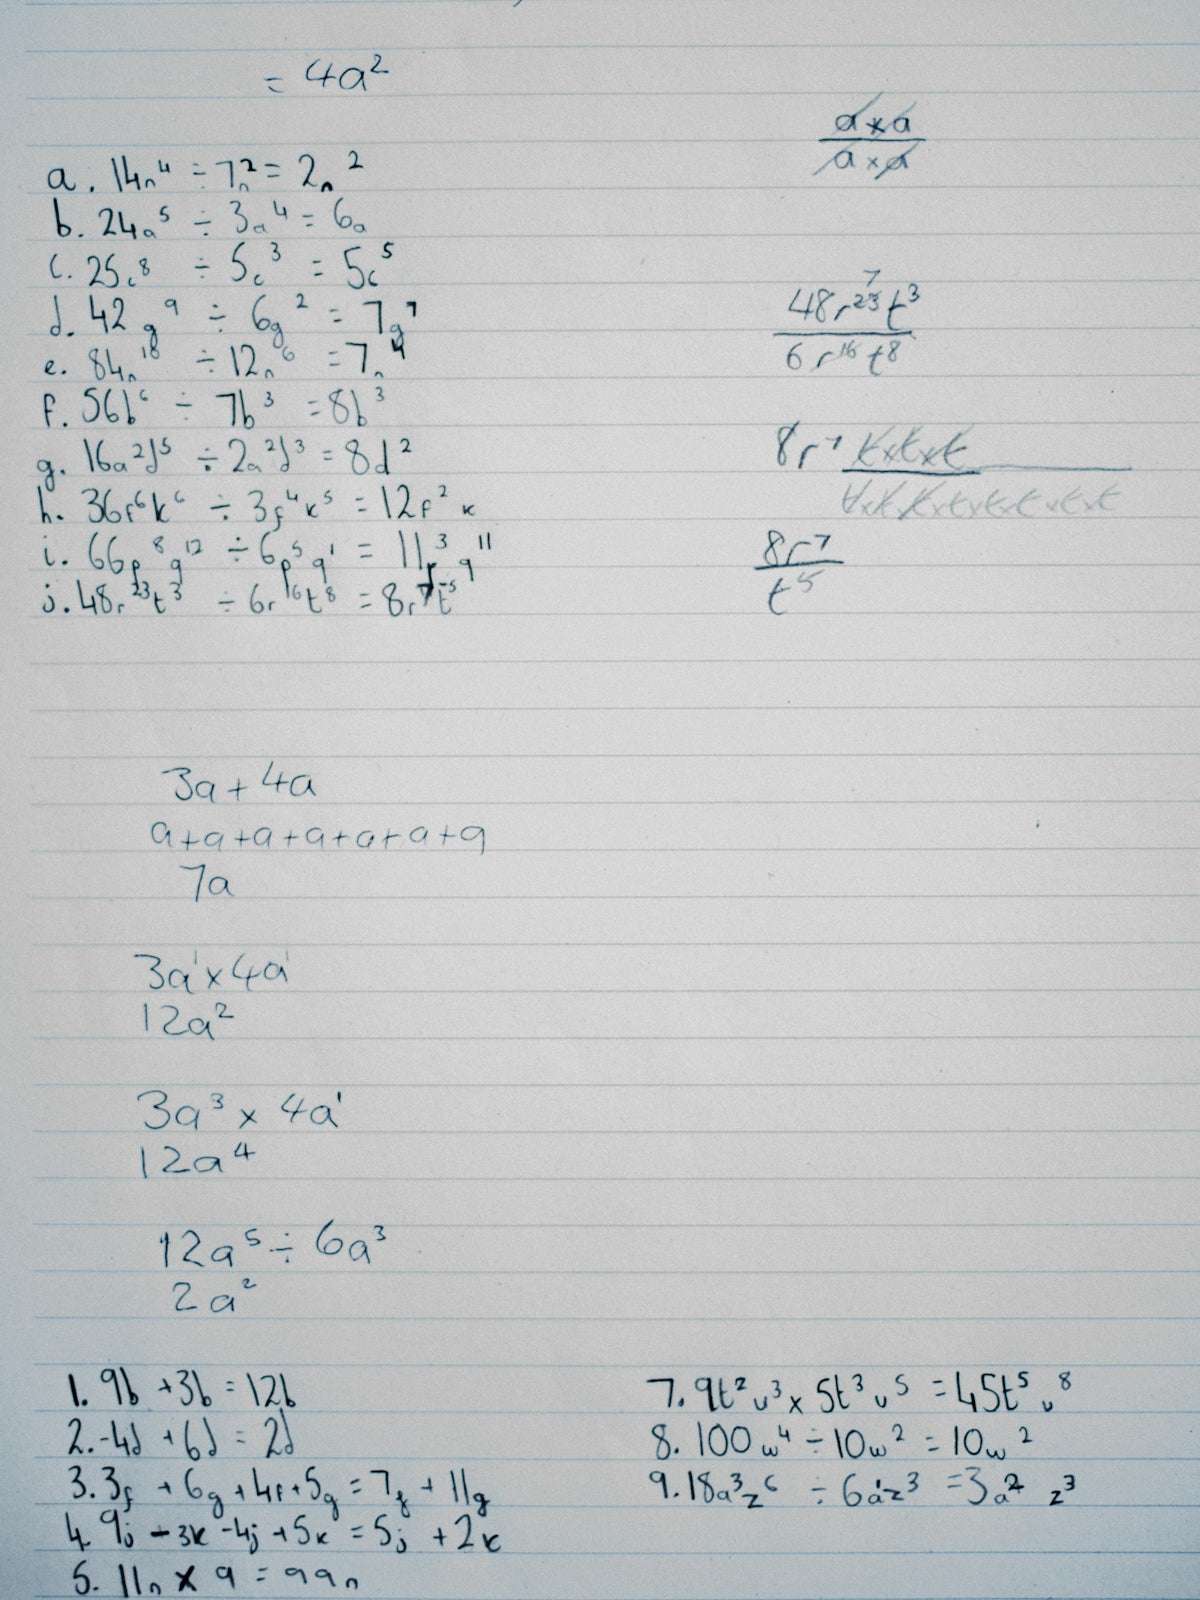 = 4a²
a. 14n⁴ ÷ 7n² = 2n²
b. 24a⁵ ÷ 3a⁴ = 6a
c. 25c⁸ ÷ 5c³ = 5c⁵
d. 42g⁹ ÷ 6g² = 7g⁷
e. 84n¹⁸ ÷ 12n⁶ = 7n
f. 56b⁶ ÷ 7b³ = 8b³
g. 16a²d⁵ ÷ 2a²d³ = 8d²
h. 36f⁶k⁶ ÷ 3f⁴k⁵ = 12f²k
i. 66p⁸q¹² ÷ 6p⁵q¹ = 11p³q¹¹
j. 48r²³t³ ÷ 6r¹⁶t⁸ = 8r⁷t⁻⁵
a × a
a × a
7
48r²³t³
6r¹⁶t⁸
8r⁷ t×t×t
t×t×t×t×t×t×t×t
8r⁷
t⁵
3a + 4a
a+a+a+a+a+a+a
7a
3a¹ × 4a¹
12a²
3a³ × 4a¹
12a⁴
12a⁵ ÷ 6a³
2a²
1. 9b + 3b = 12b
2. -4d + 6d = 2d
3. 3f + 6g + 4f + 5g = 7f + 11g
4. 9j - 3k - 4j + 5k = 5j + 2k
5. 11n × 9 = 99n
7. 9t²u³ × 5t³u⁵ = 45t⁵u⁸
8. 100w⁴ ÷ 10w² = 10w²
9. 18a³z⁶ ÷ 6a¹z³ = 3a²z³